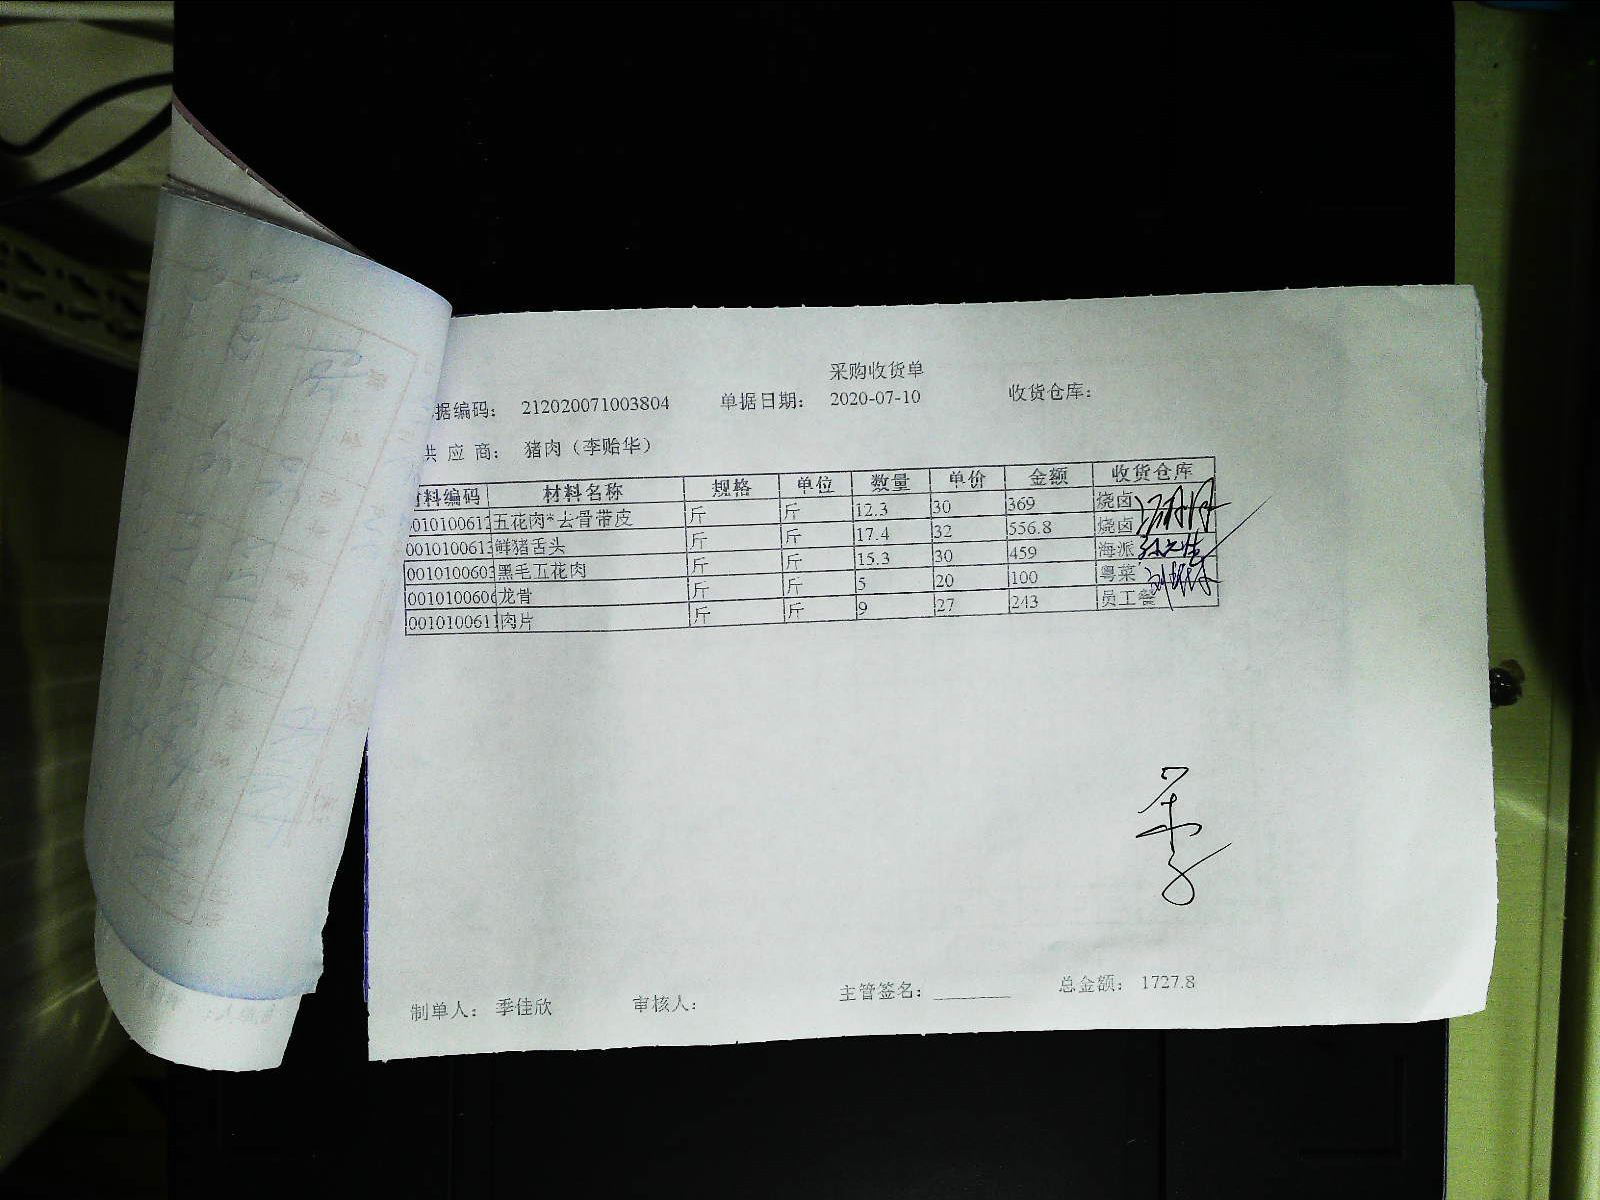 采购收货单
据编码： 212020071003804 单据日期： 2020-07-10 收货仓库：
供 应 商： 猪肉（李贻华）
材料编码 材料名称 规格 单位 数量 单价 金额 收货仓库
0010100612 五花肉*去骨带皮 斤 斤 12.3 30 369 烧卤
0010100613 鲜猪舌头 斤 斤 17.4 32 556.8 烧卤
0010100603 黑毛五花肉 斤 斤 15.3 30 459 海派
0010100606 龙骨 斤 斤 5 20 100 粤菜
0010100611 肉片 斤 斤 9 27 243 员工餐
制单人： 季佳欣 审核人： 主管签名：________ 总金额： 1727.8